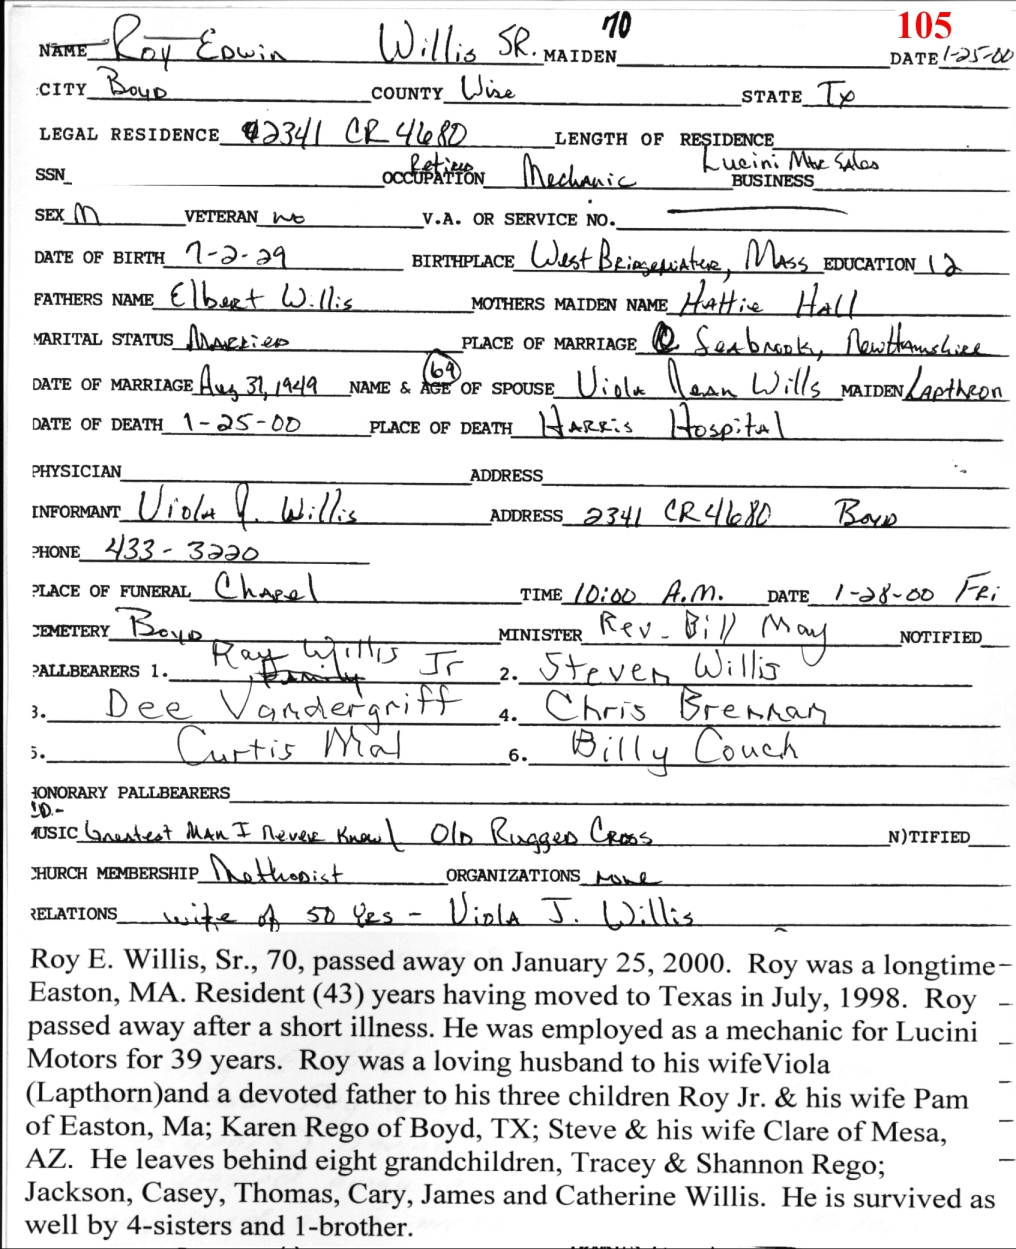 70 105
NAME Roy Edwin Willis SR. MAIDEN DATE 1-25-00
CITY Boyd COUNTY Wise STATE Tx
LEGAL RESIDENCE 2341 CR 4680 LENGTH OF RESIDENCE
SSN Retired OCCUPATION Mechanic Lucini Mtr Sales BUSINESS
SEX M VETERAN no V.A. OR SERVICE NO.
DATE OF BIRTH 7-2-29 BIRTHPLACE West Bridgewater, Mass EDUCATION 12
FATHERS NAME Elbert Willis MOTHERS MAIDEN NAME Hattie Hall
MARITAL STATUS Married PLACE OF MARRIAGE Seabrook, New Hamshire
DATE OF MARRIAGE Aug 31, 1949 NAME & AGE OF SPOUSE (69) Viola Jean Wills MAIDEN Laptheon
DATE OF DEATH 1-25-00 PLACE OF DEATH Harris Hospital
PHYSICIAN ADDRESS
INFORMANT Viola J. Willis ADDRESS 2341 CR 4680 Boyd
PHONE 433-3220
PLACE OF FUNERAL Chapel TIME 10:00 A.M. DATE 1-28-00 Fri
CEMETERY Boyd MINISTER Rev. Bill May NOTIFIED
PALLBEARERS 1. Ray Willis Jr 2. Steven Willis
3. Dee Vandergriff 4. Chris Brennan
5. Curtis Mal 6. Billy Couch
HONORARY PALLBEARERS
CD.-
MUSIC Greatest Man I Never Knew Old Rugged Cross N)TIFIED
CHURCH MEMBERSHIP Methodist ORGANIZATIONS none
RELATIONS wife of 50 yrs - Viola J. Willis
Roy E. Willis, Sr., 70, passed away on January 25, 2000. Roy was a longtime
Easton, MA. Resident (43) years having moved to Texas in July, 1998. Roy
passed away after a short illness. He was employed as a mechanic for Lucini
Motors for 39 years. Roy was a loving husband to his wifeViola
(Lapthorn)and a devoted father to his three children Roy Jr. & his wife Pam
of Easton, Ma; Karen Rego of Boyd, TX; Steve & his wife Clare of Mesa,
AZ. He leaves behind eight grandchildren, Tracey & Shannon Rego;
Jackson, Casey, Thomas, Cary, James and Catherine Willis. He is survived as
well by 4-sisters and 1-brother.